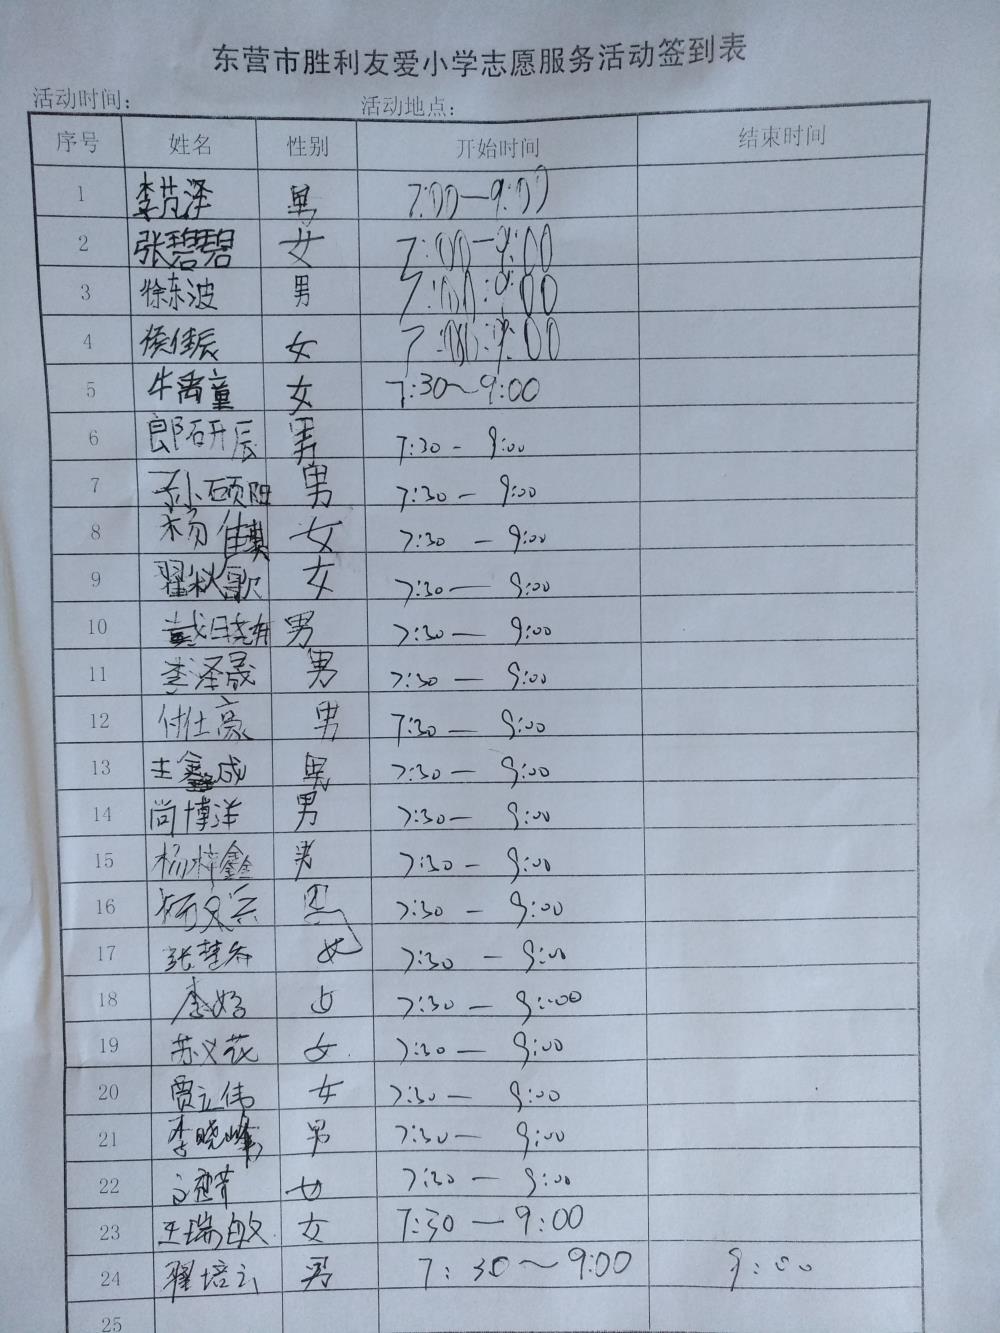 东营市胜利友爱小学志愿服务活动签到表
活动时间： 活动地点：
序号 姓名 性别 开始时间 结束时间
1 李芃泽 男 7:00—9:00
2 张碧碧 女 7:00-9:00
3 徐东波 男 7:00:9:00
4 侯佳辰 女 7:00:9:00
5 牛禹童 女 7:30～9:00
6 郎研辰 男 7:30- 9:00
7 孙硕阳 男 7:30- 9:00
8 杨佳 女 7:30 - 9:00
9 翟秋歌 女 7:30— 9:00
10 戴日 男 7:30— 9:00
11 李泽晟 男 7:30— 9:00
12 付仕豪 男 7:30— 9:00
13 王鑫成 男 7:30— 9:00
14 尚博洋 男 7:30— 9:00
15 杨梓鑫 男 7:30— 9:00
16 7:30 - 9:00
17 张 女 7:30 — 9:00
18 李 女 7:30 — 9:00
19 苏义花 女 7:30— 9:00
20 贾立伟 女 7:30— 9:00
21 李晓峰 男 7:30— 9:00
22 女 7:30 — 9:00
23 王瑞敏 女 7:30 —9:00
24 翟培云 男 7:30～9:00 9:00
25